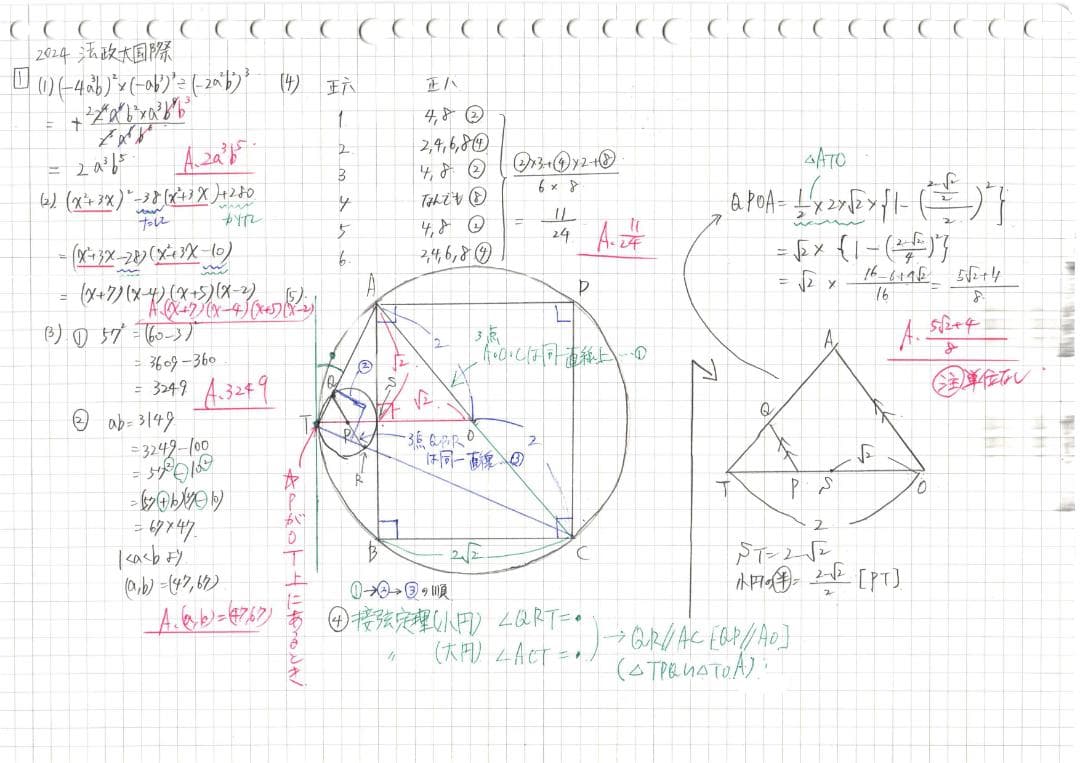 2024 法政大国際
1
(1) (-4a³b)²×(-ab³)³÷(-2a²b²)³
= 2a³b⁵
A. 2a³b⁵
(2) (x²+3x)²-38(x²+3x)+280
たして かけて
=(x²+3x-28)(x²+3x-10)
=(x+7)(x-4)(x+5)(x-2)
A. (x+7)(x-4)(x+5)(x-2)
(3) ① 57² = (60-3)²
= 3609-360
= 3249
A. 3249
② ab=3149
=3249-100
=57²-10²
=67×47
1<a<bより
(a,b)=(47,67)
A. (a,b)=(47,67)
(4) 正六 正八
1 4,8 ②
2 2,4,6,8 ④
3 4,8 ②
4 なんでも ⑧
5 4,8 ②
6 2,4,6,8 ④
②×3+④×2+⑧
6×8
= 11/24
A. 11/24
(5)
A
D
2
√2
3点
A・O・Cは同一直線上…①
②
Q
S
√2
T
P
O
R
3点Q・P・R
は同一直線…③
2
B
2√2
C
☆PがOT上にあるとき
①→②→③の順
④接弦定理(小円) ∠QRT=•
〃 (大円) ∠ACT=•
→QR//AC [QP//AO]
(△TPQ∽△TOA)
△ATO
QPOA=1/2×2×√2×{1-((2-√2)/2/2)²}
=√2×{1-((2-√2)/4)²}
=√2×(16-6+4√2)/16=(5√2+4)/8
A. (5√2+4)/8
注 単位なし
A
Q
√2
T
P
S
O
2
ST=2-√2
小円の半=(2-√2)/2 [PT]